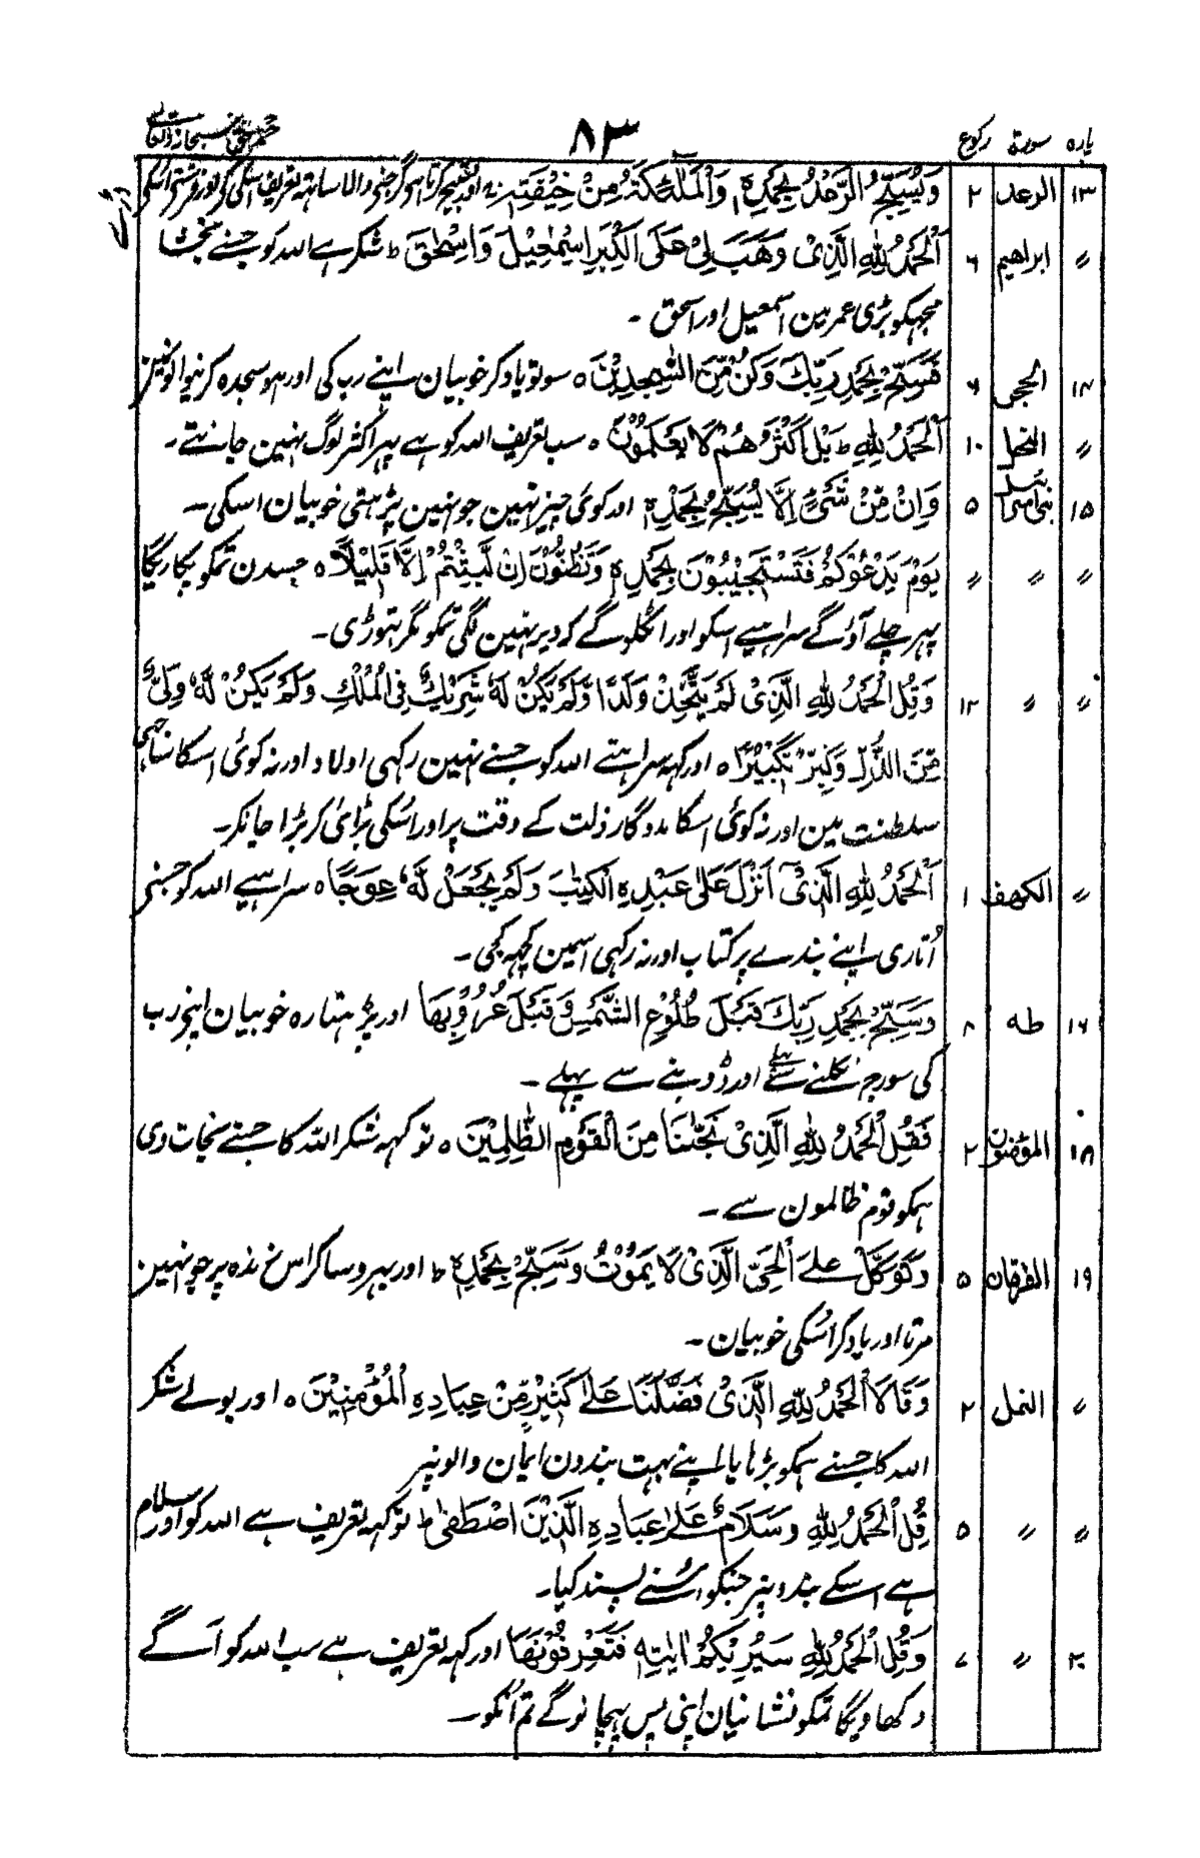 پارہ سورۃ رکوع ۸۳ حمد حق سبحانہ وتعالے
۱۳ الرعد ۲ وَيُسَبِّحُ الرَّعْدُ بِحَمْدِهٖ وَالْمَلٰٓئِكَةُ مِنْ خِيْفَتِهٖ اور تسبیح کرتا ہی گرجنی والا ساتہہ تعریف اسکی کی اور فرشتی اسکی
ڈر سی
〃 ابراهیم ۶ اَلْحَمْدُ لِلّٰهِ الَّذِىْ وَهَبَ لِىْ عَلَى الْكِبَرِ اِسْمٰعِيْلَ وَاِسْحٰقَ ط شکر ہے اللہ کو جسنے بخشا
مجہکو بڑی عمر مین اسمعیل اور اسحق ۔
۱۴ الحجر ۶ فَسَبِّحْ بِحَمْدِ رَبِّكَ وَكُنْ مِّنَ السّٰجِدِيْنَ ہ سو تو یاد کر خوبیان اپنے رب کی اور ہو سجدہ کرنیوالونمین
〃 النحل ۱۰ اَلْحَمْدُ لِلّٰهِ ط بَلْ اَكْثَرُهُمْ لَا يَعْلَمُوْنَ ہ سب تعریف اللہ کو ہے پہر اکثر لوگ نہین جانتے ۔
۱۵ بنی اسرائیل ۵ وَاِنْ مِّنْ شَىْءٍ اِلَّا يُسَبِّحُ بِحَمْدِهٖ اور کوئی چیز نہین جو نہین پڑہتی خوبیان اسکی ۔
〃 〃 〃 يَوْمَ يَدْعُوْكُمْ فَتَسْتَجِيْبُوْنَ بِحَمْدِهٖ وَتَظُنُّوْنَ اِنْ لَّبِثْتُمْ اِلَّا قَلِيْلًا ہ جسدن تمکو پکاریگا
پہر چلے آؤگے سراہتے اسکو اور اٹکلوگے کہ دیر نہین لگی تمکو مگر تہوڑی ۔
〃 〃 ۱۲ وَقُلِ الْحَمْدُ لِلّٰهِ الَّذِىْ لَمْ يَتَّخِذْ وَلَدًا وَّلَمْ يَكُنْ لَّهٗ شَرِيْكٌ فِى الْمُلْكِ وَلَمْ يَكُنْ لَّهٗ وَلِىٌّ
مِّنَ الذُّلِّ وَكَبِّرْهُ تَكْبِيْرًا ہ اور کہہ سراہتے اللہ کو جسنے نہین رکہی اولاد اور نہ کوئی اسکا ساجہی
سلطنت مین اور نہ کوئی اسکا مددگار ذلت کے وقت پر اور اسکی بڑائی کر بڑا جانکر ۔
〃 الکهف ۱ اَلْحَمْدُ لِلّٰهِ الَّذِىْٓ اَنْزَلَ عَلٰى عَبْدِهِ الْكِتٰبَ وَلَمْ يَجْعَلْ لَّهٗ عِوَجًا ہ سراہیے اللہ کو جسنے
اُتاری اپنے بندے پر کتاب اور نہ رکہی اسمین کچہہ کجی ۔
۱۶ طه ۸ وَسَبِّحْ بِحَمْدِ رَبِّكَ قَبْلَ طُلُوْعِ الشَّمْسِ وَقَبْلَ غُرُوْبِهَا اور پڑہتا رہ خوبیان اپنے رب
کی سورج نکلنے سے پہلے اور ڈوبنے سے پہلے ۔
۱۸ المؤمنون ۲ فَقُلِ الْحَمْدُ لِلّٰهِ الَّذِىْ نَجّٰىنَا مِنَ الْقَوْمِ الظّٰلِمِيْنَ ہ تو کہہ شکر اللہ کا جسنے نجات دی
ہمکو قوم ظالمون سے ۔
۱۹ الفرقان ۵ وَتَوَكَّلْ عَلَى الْحَىِّ الَّذِىْ لَا يَمُوْتُ وَسَبِّحْ بِحَمْدِهٖ ط اور بہروسا کر اس زندہ پر جو نہین
مرتا اور یاد کر اسکی خوبیان ۔
〃 النمل ۲ وَقَالَا الْحَمْدُ لِلّٰهِ الَّذِىْ فَضَّلَنَا عَلٰى كَثِيْرٍ مِّنْ عِبَادِهِ الْمُؤْمِنِيْنَ ہ اور بولے شکر
اللہ کا جسنے ہمکو بڑہایا اپنے بہت بندون ایمان والونپر
〃 〃 ۵ قُلِ الْحَمْدُ لِلّٰهِ وَسَلَامٌ عَلٰى عِبَادِهِ الَّذِيْنَ اصْطَفٰى ط تو کہہ تعریف ہے اللہ کو اور سلام
ہے اسکے بندونپر جنکو اسنے پسند کیا ۔
۲۰ 〃 ۷ وَقُلِ الْحَمْدُ لِلّٰهِ سَيُرِيْكُمْ اٰيٰتِهٖ فَتَعْرِفُوْنَهَا اور کہہ تعریف ہے سب اللہ کو آگے
دکہاویگا تمکو نشانیان اپنی پس پہچانوگے تم اُنکو ۔